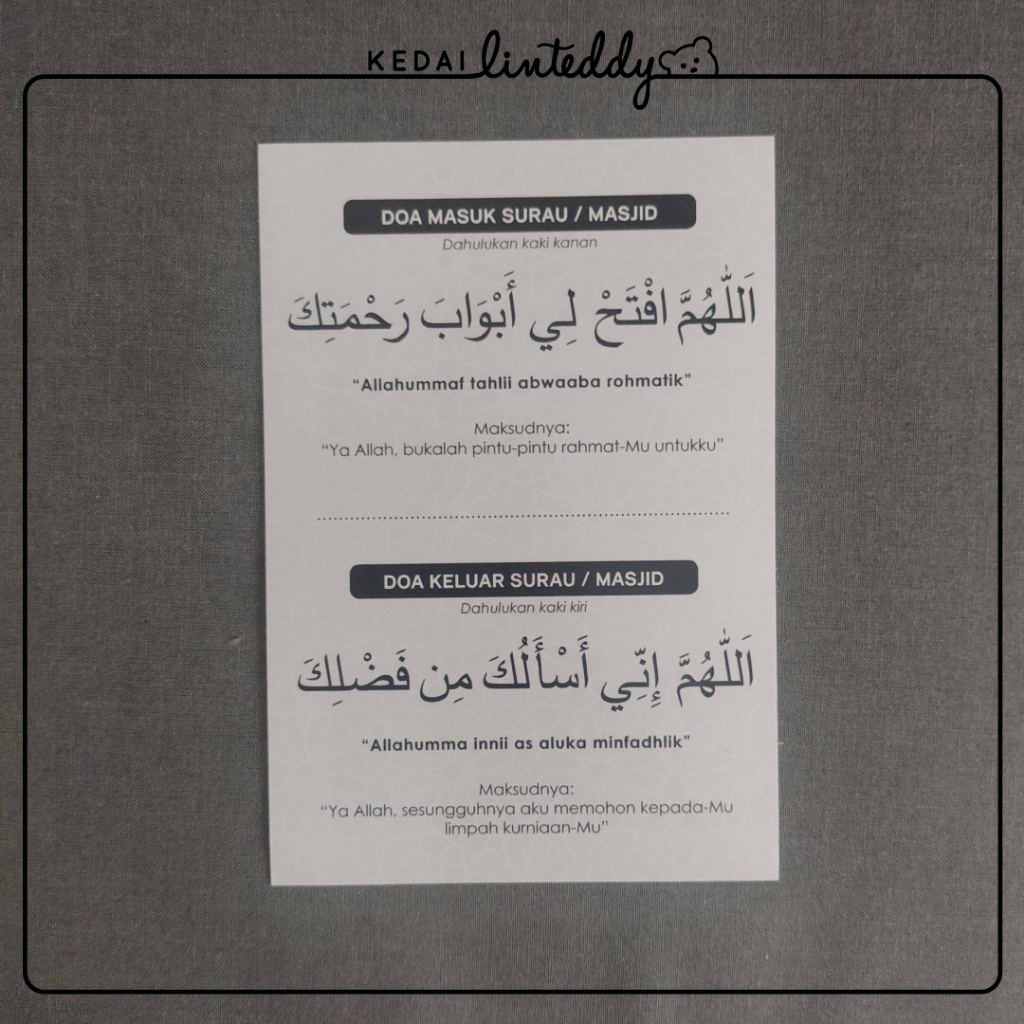 KEDAI linteddy
DOA MASUK SURAU / MASJID
Dahulukan kaki kanan
اَللّٰهُمَّ افْتَحْ لِي أَبْوَابَ رَحْمَتِكَ
“Allahummaf tahlii abwaaba rohmatik”
Maksudnya:
“Ya Allah, bukalah pintu-pintu rahmat-Mu untukku”
DOA KELUAR SURAU / MASJID
Dahulukan kaki kiri
اَللّٰهُمَّ إِنِّي أَسْأَلُكَ مِن فَضْلِكَ
“Allahumma innii as aluka minfadhlik”
Maksudnya:
“Ya Allah, sesungguhnya aku memohon kepada-Mu
limpah kurniaan-Mu”